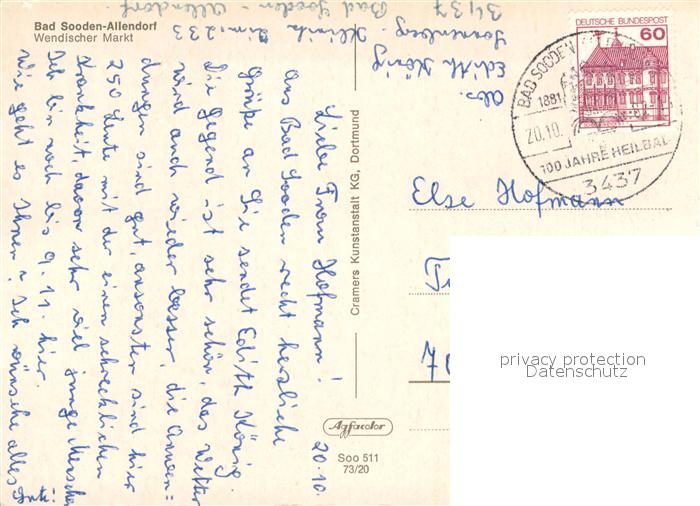 Bad Sooden-Allendorf
Wendischer Markt
Abs.
Edith König
Sonnenberg-Klinik Zim. 233
3437 Bad Sooden-Allendorf
DEUTSCHE BUNDESPOST
60
BAD SOODEN
1881
20.10.
100 JAHRE HEILBAD
3437
20.10.
Liebe Frau Hofmann!
Aus Bad Sooden recht herzliche
Grüße an Sie sendet Edith König.
Die Gegend ist sehr schön, das Wetter
wird auch wieder besser, die Anwen=
dungen sind gut, ansonsten sind hier
250 Leute mit der einen schrecklichen
Krankheit, davon sehr viel junge Menschen
Ich bin noch bis 9.11. hier.
Wie geht es Ihnen? Ich wünsche alles
Gute!
Cramers Kunstanstalt KG, Dortmund
Else Hofmann
70
Agfacolor
Soo 511
73/20
privacy protection
Datenschutz